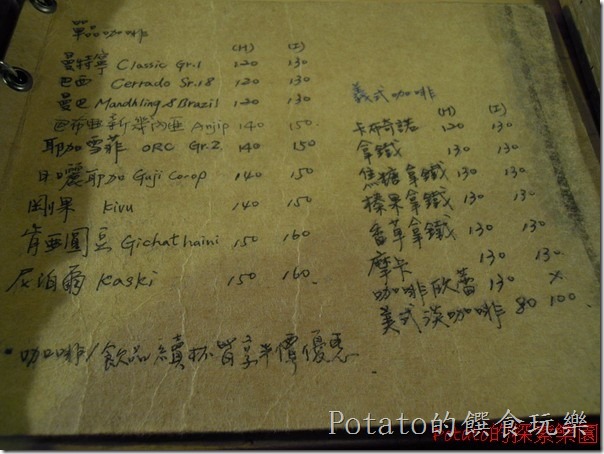 單品咖啡
(H) (I)
曼特寧 Classic Gr.1 120 130
巴西 Cerrado Sr.18 120 130
曼巴 Mandhling & Brazil 120 130
巴布亞新幾內亞 Anjip 140 150.
耶加雪菲 ORC Gr.2 140 150
日曬耶加 Guji Corop 140 150
剛果 Kivu 140 150
肯亞圓豆 Gichathaini 150 160
尼泊爾 Kaski 150 160.
義式咖啡
(H) (I)
卡布奇諾 120 130
拿鐵 130 130
焦糖拿鐵 130 130
榛果拿鐵 130 130
香草拿鐵 130 130
摩卡 130 130
咖啡歐蕾 130 x
美式淡咖啡 80 100.
*咖啡/飲品續杯皆享半價優惠.
Potato的饌食玩樂
Potato的探索樂園